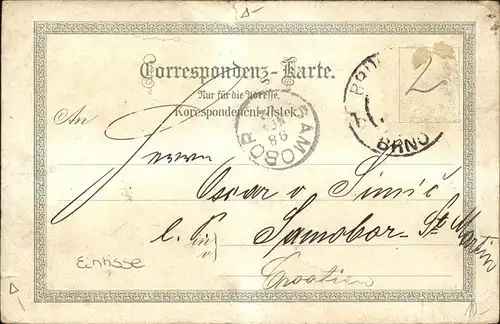 Correspondenz-Karte.
Nur für die Adresse.
Korespondenční lístek.
2
BRNO
SAMOBOR
98
An
Herrn
Oscar v Simić
Samobor - St Martin
Croatien
Einrisse
10-